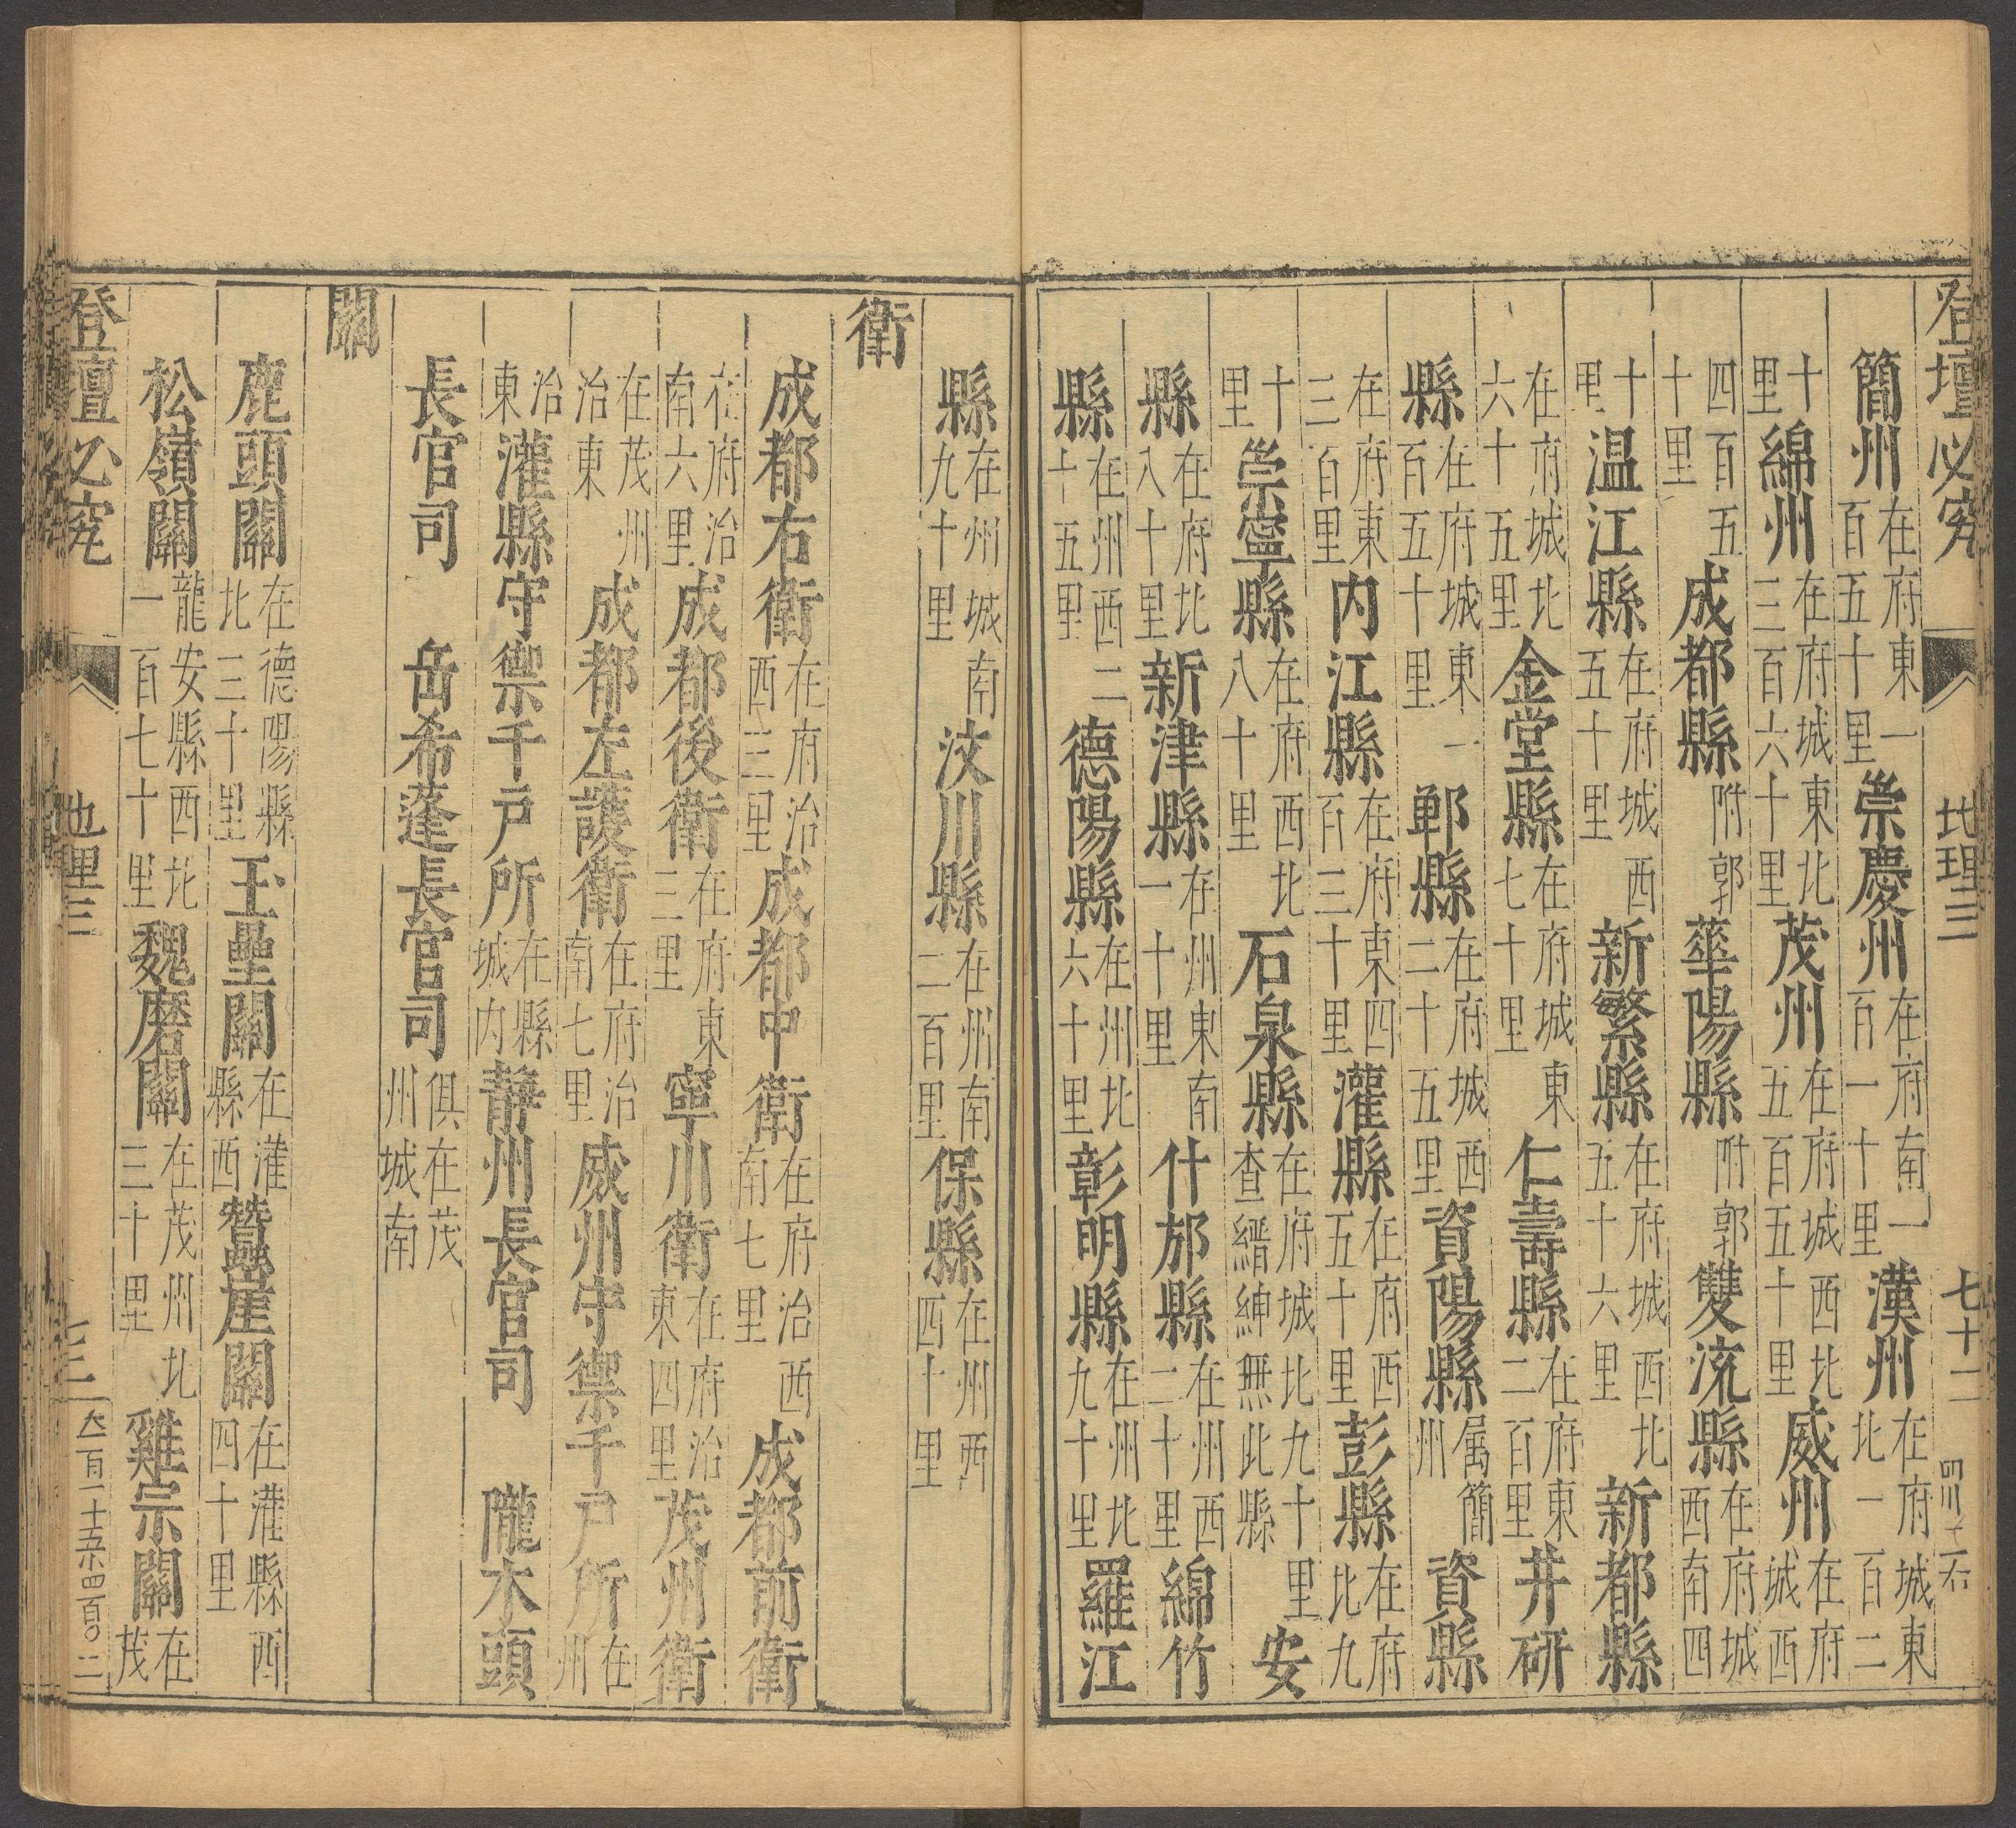 登壇必究 地理三 七十二 四川
簡州在府東一百五十里崇慶州在府南一百一十里漢州在府城東北一百二
十里綿州在府城東北三百六十里茂州在府城西北五百五十里威州在府城西
四百五十里成都縣附郭華陽縣附郭雙流縣在府城西南四
十里温江縣在府城西五十里新繁縣在府城西北五十六里新都縣
在府城北六十五里金堂縣在府城東七十里仁壽縣在府東二百里井研
縣在府城東一百五十里郫縣在府城西二十五里資陽縣属簡州資縣
在府東三百里内江縣在府東四百三十里灌縣在府西五十里彭縣在府北九
十里崇寧縣在府西北八十里石泉縣在府城北九十里查縉紳無此縣安
縣在府北八十里新津縣在州東南一十里什邡縣在州西二十里綿竹
縣在州西二十五里德陽縣在州北六十里彰明縣在州北九十里羅江
縣在州城南九十里汶川縣在州南二百里保縣在州西四十里
衛
成都右衛在府治西三里成都中衛在府治西南七里成都前衛
在府治南六里成都後衛在府東三里寧川衛在府治東四里茂州衛
在茂州治東成都左護衛在府治南七里威州守禦千戸所在州
治東灌縣守禦千戸所在縣城内靜州長官司 隴木頭
長官司 岳希蓬長官司俱在茂州城南
關
鹿頭關在德陽縣北三十里玉壘關在灌縣西蠶崖關在灌縣西四十里
松嶺關龍安縣西北一百七十里魏磨關在茂州北三十里雞宗關在茂
登壇必究 地里三